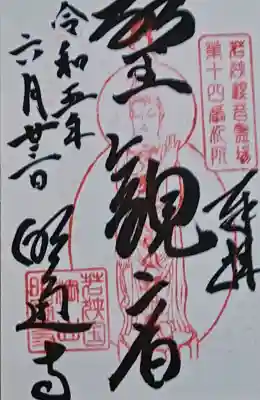 若狭観音霊場
第十四番札所
奉拝
聖觀音
令和五年
六月
明通寺
若狭国